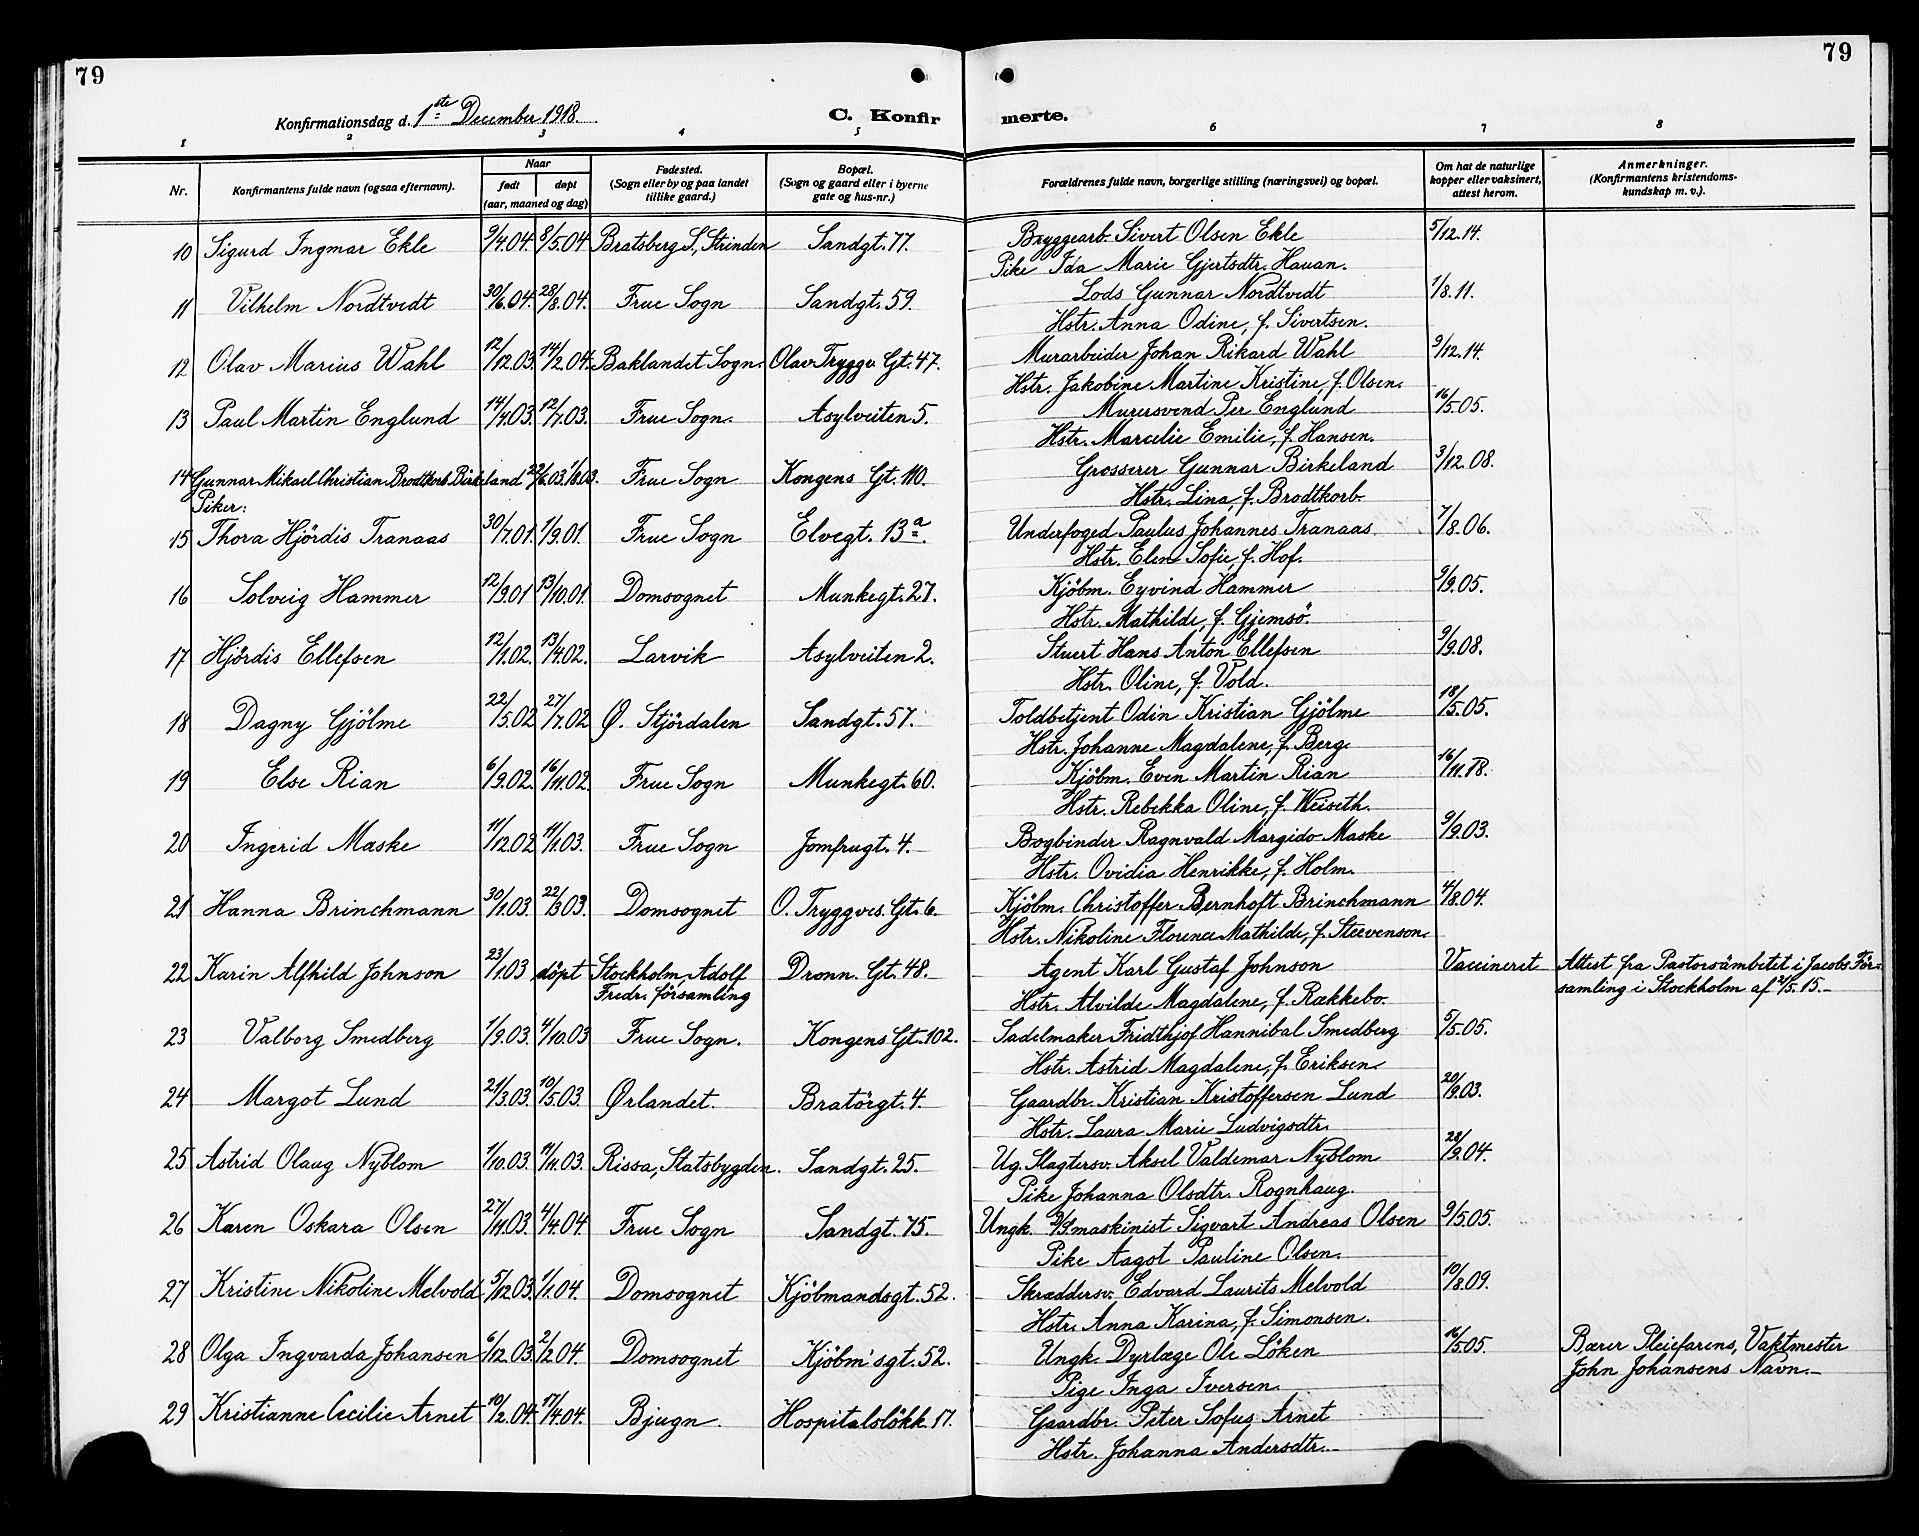 79
79
Konfirmationsdag d. 1ste December 1918.
C. Konfir
merte.
1 2 3 4 5 6 7 8
Nr. Konfirmantens fulde navn (ogsaa efternavn). Naar født døpt (aar, maaned og dag) Fødested. (Sogn eller by og paa landet tillike gaard.) Bopæl. (Sogn og gaard eller i byerne gate og hus-nr.) Forældrenes fulde navn, borgerlige stilling (næringsvei) og bopæl. Om hat de naturlige kopper eller vaksinert, attest herom. Anmerkninger. (Konfirmantens kristendoms- kundskap m. v.).
10 Sigurd Ingmar Ekle 9/4.04. 8/5.04 Bratsberg S., Strinden Sandgt. 77. Bryggearb. Sivert Olsen Ekle 5/12.14.
Pike Ida Marie Gjertsdtr. Hauan.
11 Vilhelm Nordtvedt 30/6.04. 28/8.04. Frue Sogn Sandgt. 59. Lods Gunnar Nordtvedt 1/8.11.
Hstr. Anna Odine, f. Sivertsen.
12 Olav Marius Wahl 12/12.03. 14/2.04. Baklandet Sogn. Olav Tryggv. Gt. 47. Murarbeider Johan Rikard Wahl 9/12.14.
Hstr. Jakobine Martine Kristine, f. Olsen.
13 Paul Martin Englund 14/4.03. 12/7.03. Frue Sogn. Asylveiten 5. Murersvend Per Englund 16/5.05.
Hstr. Marcelie Emilie, f. Hansen.
14 Gunnar Mikael Christian Brodtkorb Birkeland 22/6.03. 1/8.03. Frue Sogn Kongens Gt. 110. Grosserer Gunnar Birkeland 3/12.08.
Hstr. Lina, f. Brodtkorb.
Piker:
15 Thora Hjördis Tranaas 30/7.01. 1/9.01. Frue Sogn Elvegt. 13a. Underfoged Paulus Johannes Tranaas. 7/8.06.
Hstr. Elen Sofie, f. Hof.
16 Solveig Hammer 12/9.01 13/10.01. Domsognet Munkegt. 27. Kjöbm. Eyvind Hammer 9/9.05.
Hstr. Mathilde, f. Gjemsö.
17 Hjördis Ellefsen 12/1.02. 13/4.02. Larvik Asylveiten 2. Stuert Hans Anton Ellefsen 9/9.08.
Hstr. Oline, f. Vold.
18 Dagny Gjölme 22/5.02 27/7.02 Ø. Stjördalen Sandgt. 57. Toldbetjent Odin Kristian Gjölme 18/5.05.
Hstr. Johanne Magdalene, f. Berg.
19 Else Rian 6/9.02. 16/11.02. Frue Sogn Munkegt. 60. Kjöbm. Even Martin Rian 16/11.18.
Hstr. Rebekka Oline, f. Weiseth.
20 Ingerid Maske 11/12.02 11/1.03. Frue Sogn Jomfrugt. 4. Bogbinder Ragnvald Margido Maske 9/9.03.
Hstr. Ovidia Henrikke, f. Holm.
21 Hanna Brinchmann 30/1.03. 22/3.03. Domsognet O. Tryggves. Gt. 6. Kjöbm. Christoffer Bernhoft Brinchmann 4/8.04.
Hstr. Nikoline Florence Mathilde, f. Steevenson.
22 Karin Alfhild Johnson 23/1.03 döpt Stockholm, Adolf Dronn. Gt. 48. Agent Karl Gustaf Johnson Vaccineret Attest fra Pastorsämbetet i Jacobs För-
Fredr. församling Hstr. Alvilde Magdalene, f. Rækkebo. samling i Stockholm af 2/5.15.
23 Valborg Smedberg 1/9.03. 4/10.03 Frue Sogn. Kongens Gt. 102. Sadelmaker Fridthjof Hannibal Smedberg 5/5.05.
Hstr. Astrid Magdalene, f. Eriksen.
24 Margot Lund 21/3.03. 10/5.03. Ørlandet. Bratörgt. 4. Gaardbr. Kristian Kristoffersen Lund 20/9.03.
Hstr. Laura Marie Ludvigsdtr.
25 Astrid Olaug Nyblom 1/10.03. 11/11.03. Rissa, Statsbygden. Sandgt. 25. Ug. Slagtersv. Aksel Valdemar Nyblom 28/9.04.
Pike Johanna Olsdtr. Rognhaug.
26 Karen Oskara Olsen 27/11.03. 4/4.04. Frue Sogn Sandgt. 75. Ungk. D/S. maskinist Sigvart Andreas Olsen 9/5.05.
Pike Aagot Pauline Olsen.
27 Kristine Nikoline Melvold 5/12.03. 1/1.04. Domsognet Kjöbmandsgt. 52. Skræddersv. Edvard Laurits Melvold 10/8.09.
Hstr. Anna Karina, f. Simonsen.
28 Olga Ingvarda Johansen 6/12.03. 2/2.04. Domsognet Kjöbm'sgt. 52. Ungk. Dyrlæge Ole Löken 16/5.05. Bærer Pleiefarens, Vaktmester
Pige Inga Iversen. John Johansens Navn.
29 Kristianne Cecilie Arnet 10/2.04. 17/4.04. Bjugn. Hospitalslökk. 17. Gaardbr. Peter Sofus Arnet
Hstr. Johanna Andersdtr.